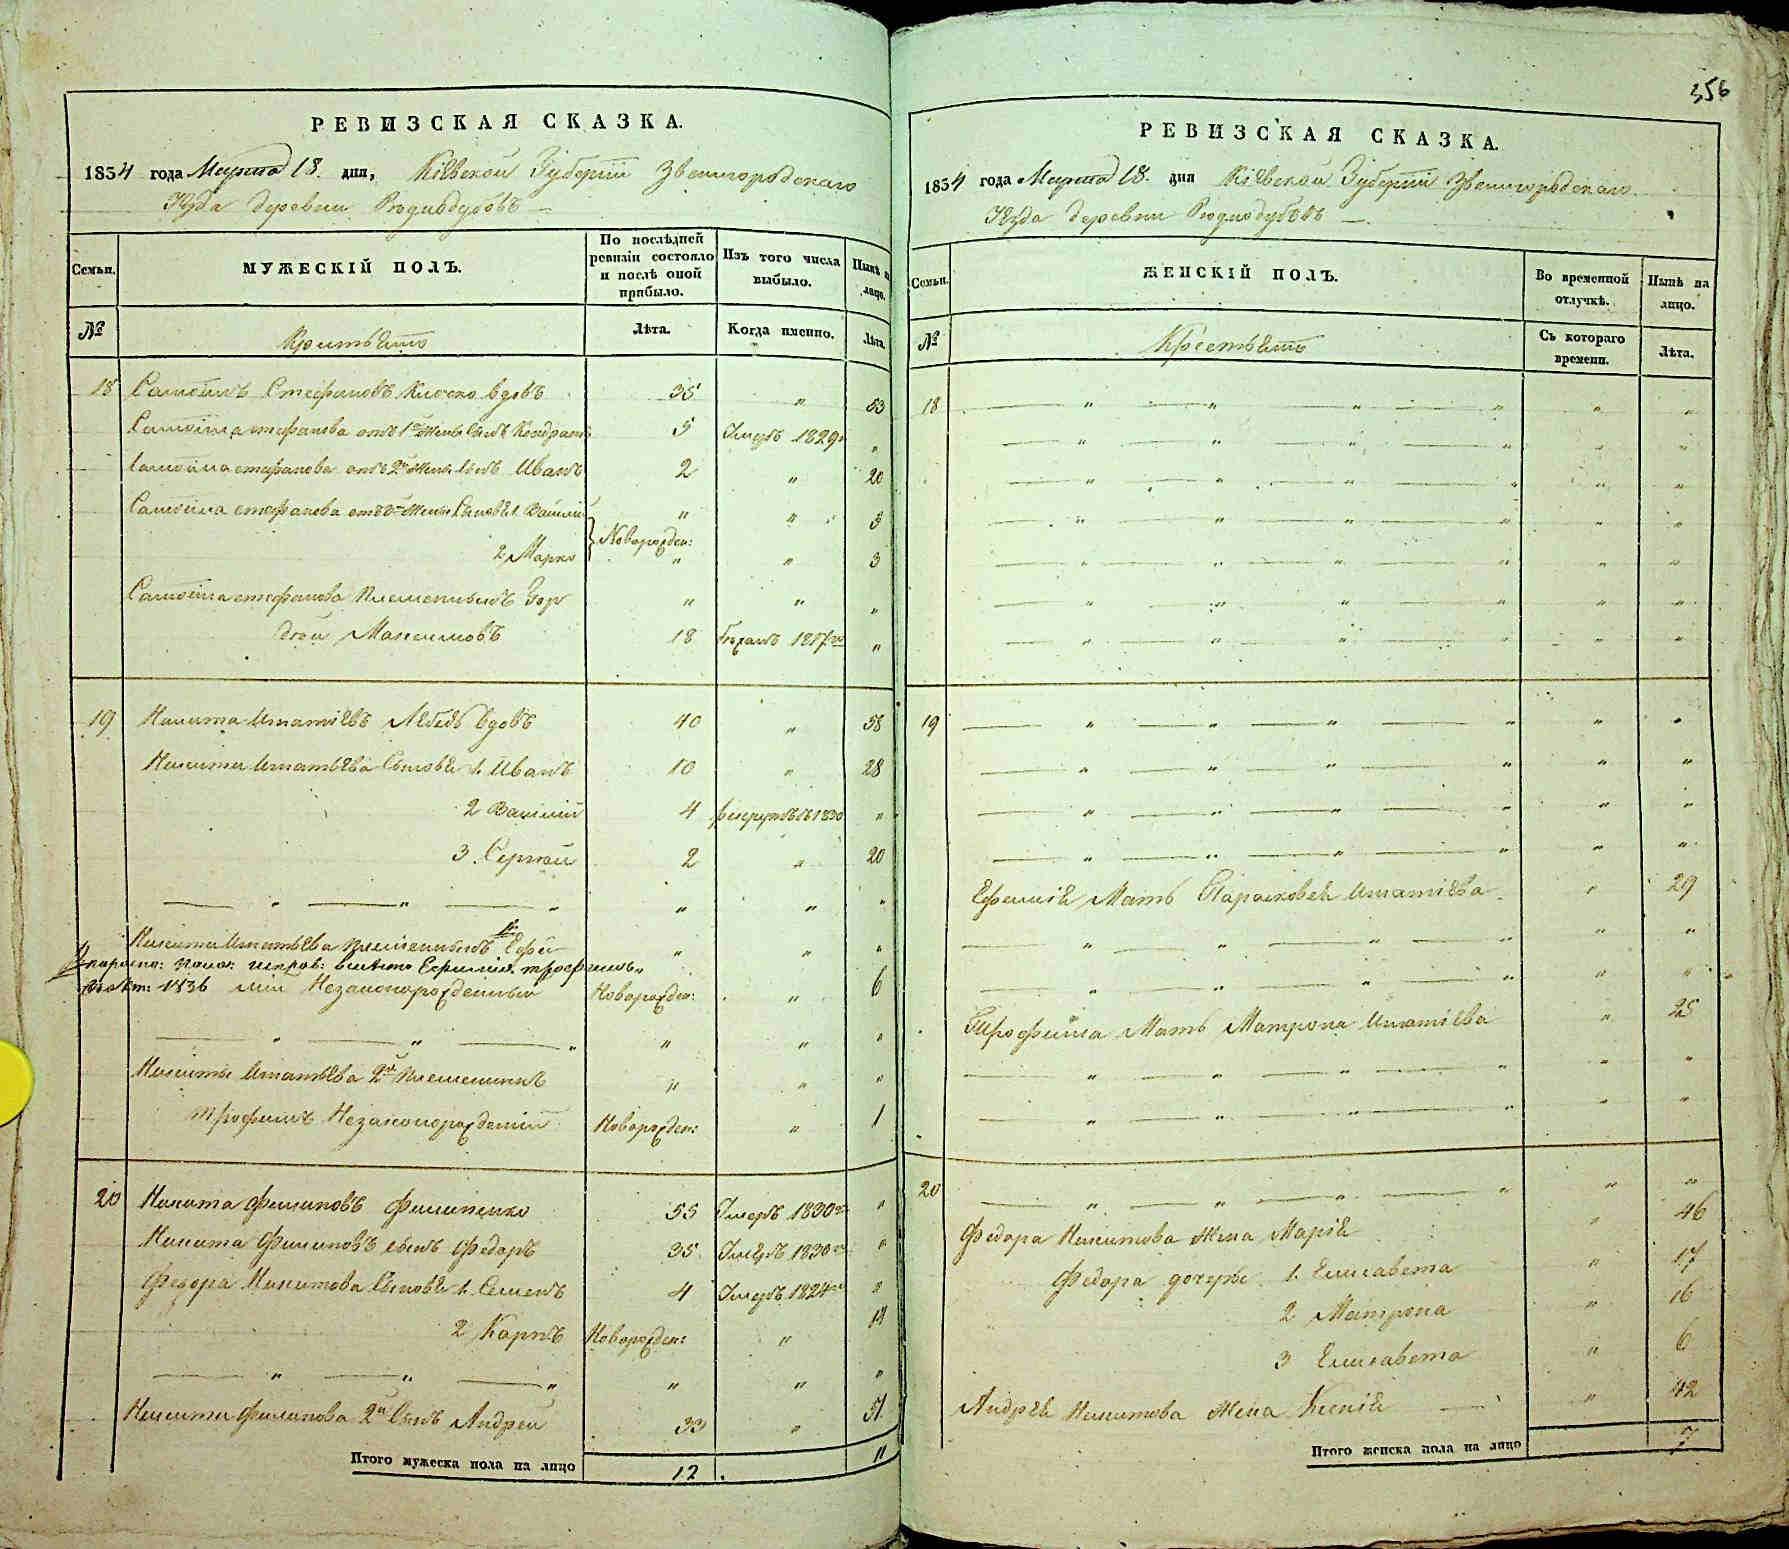 РЕВИЗСКАЯ СКАЗКА.
1834 года Марта 18. дня, Кіевской Губерніи Звенигородскаго
Уѣзда деревни
Семьи.
МУЖЕСКІЙ ПОЛЪ.
По послѣдней ревизіи состояло и послѣ оной прибыло.
Изъ того числа выбыло.
Нынѣ на лицо.
№
Лѣта.
Когда именно.
Лѣта.
18 Самойлъ Стефановъ вдовъ 35 " 53
Самойла стефанова отъ 1й жены сынъ Кондратъ 5 Умеръ 1829 "
Самойла стефанова отъ 2й жены сынъ Иванъ 2 " 20
Самойла стефанова отъ жены Сыновья 1. Василій " " 3
2 Марко Новорожден: " " 3
Самойла стефанова племенникъ " " "
Максимовъ 18 "
19 Никита Игнатіевъ Лебедь вдовъ 40 " 58
Никиты Игнатьева Сыновья 1. Иванъ 10 " 28
2 Василій 4 1830 "
3. Сергей 2 " 20
" " " " " "
Никиты Игнатьева племенникъ " " "
вместо Ефимія
1836 или Незаконорожденный Новорожден: " 6
" " " " " "
Никиты Игнатьева 2й племенникъ " " "
Трофимъ Незаконорожденій Новорожден: " 1
20 Никита Филиповъ Филипенко 55 Умеръ 1830 "
Никита Филиповъ сынъ Федоръ 35 Умеръ 1830 "
Федора Никитова Сыновья 1. Семенъ 4 Умеръ 1824 "
2 Карпъ Новорожден: "
" " " " " "
Никиты Филипова 2й Сынъ Андрей 33 " 51
Итого мужеска пола на лицо 12 11
356
РЕВИЗСКАЯ СКАЗКА.
1834 года Марта 18. дня Кіевской Губерніи Звенигородскаго
Уѣзда деревни
Семьи.
ЖЕНСКІЙ ПОЛЪ.
Во временной отлучкѣ.
Нынѣ на лицо.
№
Съ котораго времени.
Лѣта.
18 " " " " " "
" " " " " "
" " " " " "
" " " " " "
" " " " " "
" " " " " "
" " " " " "
19 " " " " " "
" " " " " "
" " " " " "
" " " " " "
Ефимія Мать Парасковея Игнатіева " 29
" " " " " "
" " " " " "
Трофима Мать Матрона Игнатіева " 25
" " " " " "
" " " " " "
20 " " " " " "
Федора Никитова жена Марія " 46
Федора дочери 1. Елисавета " 17
2 Матрона " 16
3 Елисавета " 6
Андрея Никитова жена Ксенія " 42
Итого женска пола на лицо 7